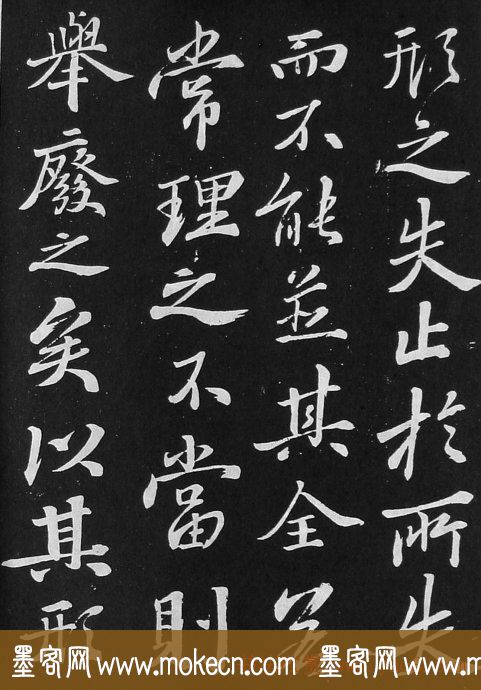 形之失止於所失
而不能並其全若
常理之不當則
舉廢之矣以其形
墨客网 www.mokecn.com 墨客网 www.mokecn.com